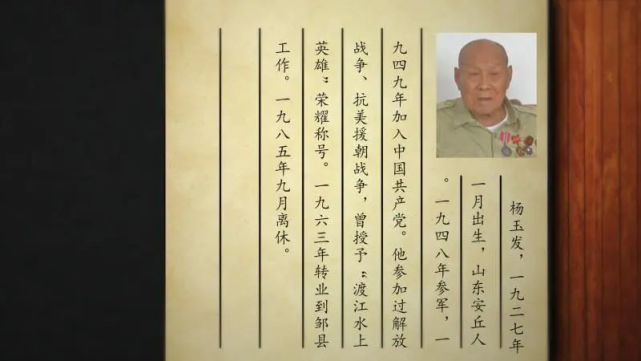 杨玉发，一九二七年
一月出生，山东安丘人
。一九四八年参军，一
九四九年加入中国共产党。他参加过解放
战争、抗美援朝战争，曾授予“渡江水上
英雄”荣耀称号。一九六三年转业到邹县
工作。一九八五年九月离休。